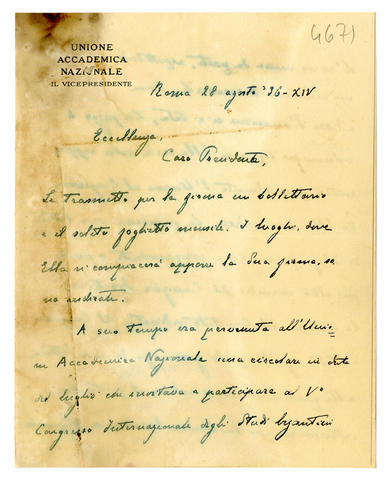 4671
UNIONE
ACCADEMICA
NAZIONALE
IL VICEPRESIDENTE
Roma 28 agosto '36-XIV
Eccellenza,
Caro Presidente,
Le trasmetto per la firma un bollettario
e il solito foglietto mensile. I luoghi, dove
Ella si compiacerà apporre la Sua firma, so
no indicati.
A suo tempo era pervenuta all'Unio=
ne Accademica Nazionale una circolare in data
del luglio che invitava a partecipare al V°
Congresso Internazionale degli Studi byzantini